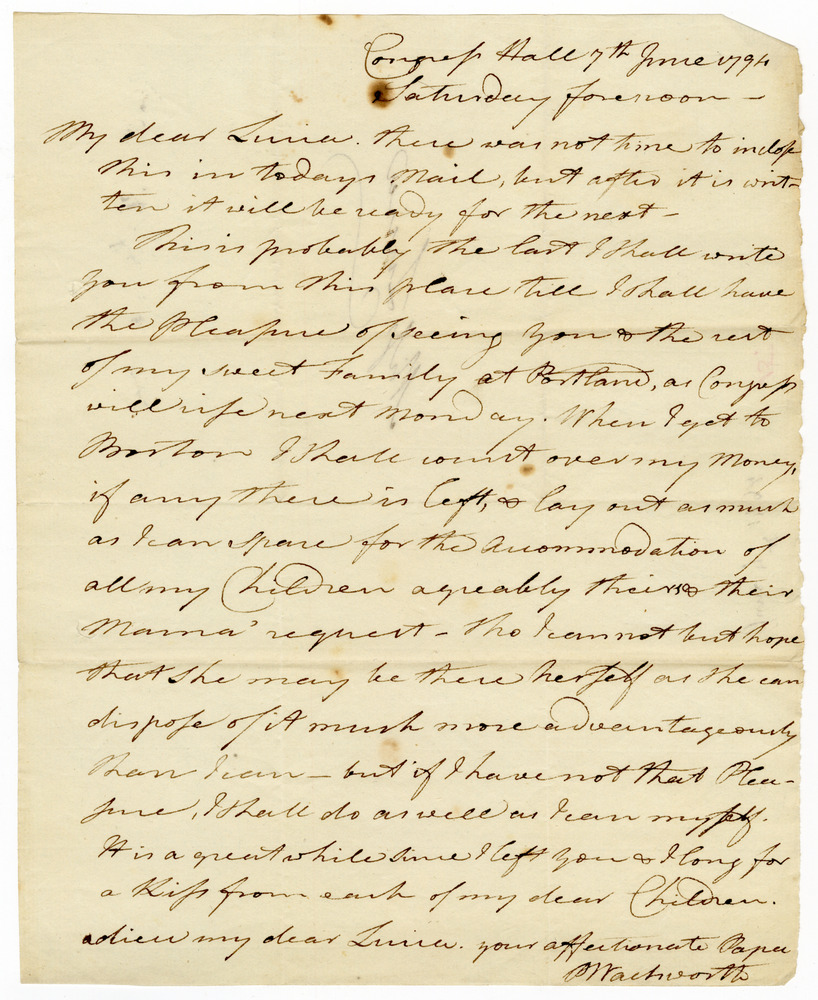 Congress Hall 7th June 1794
Saturday forenoon -
My dear Lucia. there was not time to inclose
this in todays Mail, but after it is writ-
ten it will be ready for the next -
This is probably the last I shall write
you from this place till I shall have
the Pleasure of seeing you & the rest
of my sweet Family at Portland, as Congress
will rise next Monday. When I get to
Boston I shall count over my Money,
if any there is left, & lay out as much
as I can spare for the Accommodation of
all my Children agreably theirs & their
Mama' request - tho I cannot but hope
that she may be there herself as she can
dispose of it much more advantageously
than I can - but if I have not that Plea-
sure, I shall do as well as I can myself.
It is a great while since I left you & I long for
a Kiss from each of my dear Children.
adieu my dear Lucia. your affectionate Papa
PWadsworth